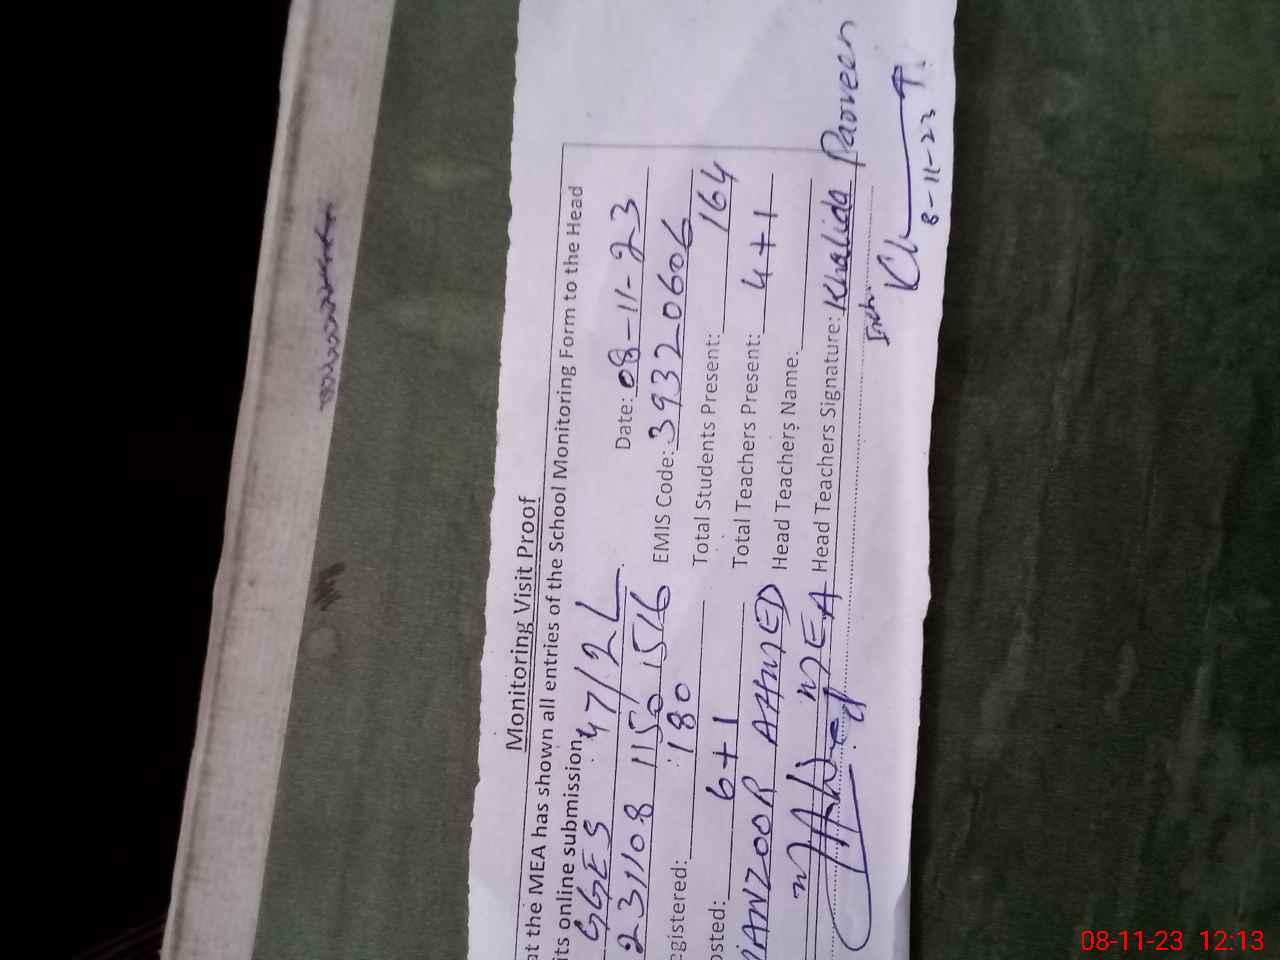 Monitoring Visit Proof
at the MEA has shown all entries of the School Monitoring Form to the Head
its online submission.
GGES 47/2L Date: 08-11-23
231108 1150 1516 EMIS Code: 39320606
egistered: 180 Total Students Present: 164
osted: 6+1 Total Teachers Present: 4+1
MANZOOR AHMED Head Teachers Name:
MEA Head Teachers Signature: Khalida Parveen
8-11-23
08-11-23 12:13